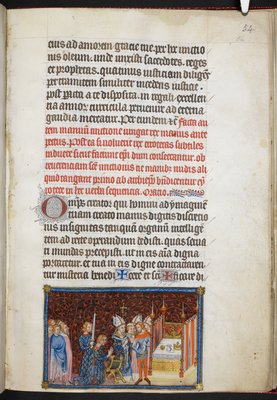 eius ad amorem gracie tue per hec unctio
nis oleum. unde unxisti sacerdotes. reges
et prophetas. quatinus iusticiam diligens
per tramitem similiter incedens iusticie.
post peracta a te disposita. in regali excellen
cia annorum curricula pervenire ad eterna
gaudia mereatur. Per eundem &c̄ facta au
tem manuū unctione iungat rex manus ante
pectus. Postea si voluerit rex cirotecas subtiles
induere sicut faciunt epi dum consecrantur. ob
reverentiam sce unctionis ne manibus nudis ali
quid tangant primo ab archiepō bñdicentur cy
rotece in hec verba sequencia. Oratio.
Omps creator qui homini ad ymaginem
tuam creato manus digitis discretio
nis insignitas tanquam organum intelligen
tie ad recte operandum dedisti. quas serua
ri mundas precepisti. ut in eis aīa digna
portaretur. et tua in eis digne contrectaren
tur misteria benedi ✠ cere et sc̄i ✠ ficare di